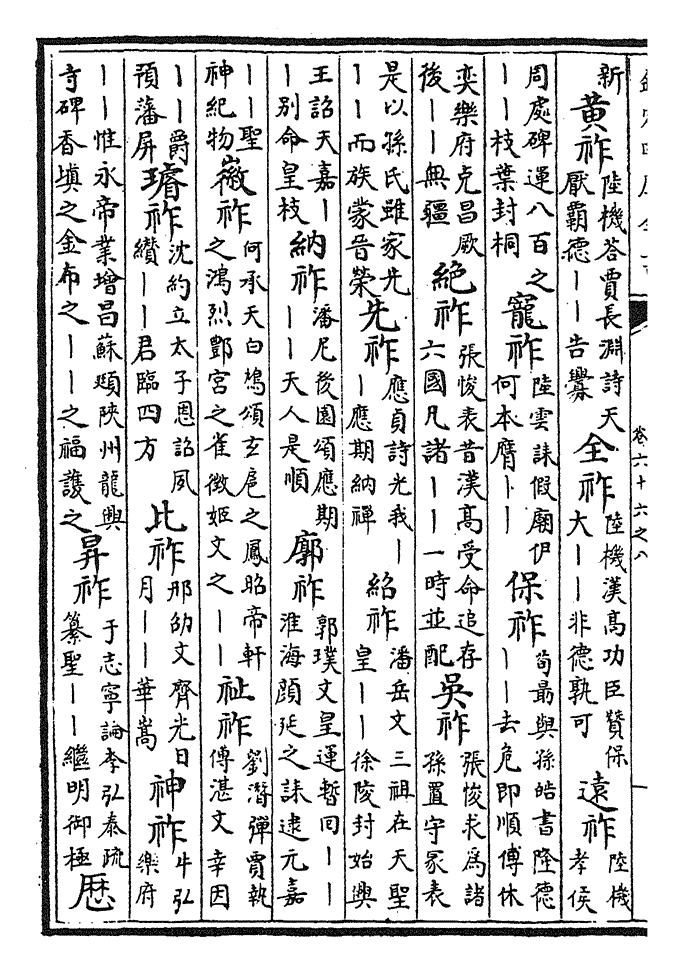 卷六十六之八
新 黄祚 陸機答賈長淵詩天厭霸德丨丨告釁 全祚 陸機漢髙功臣賛保大丨丨非德孰可 逺祚 陸機孝侯
周處碑運八百之丨丨枝葉封桐 寵祚 陸雲誄假廟伊何本膺丨丨 保祚 荀朂與孫皓書隆德丨丨去危即順傅休
奕樂府克昌厥後丨丨無疆 絶祚 張悛表昔漢髙受命追存六國凡諸丨丨一時並配 吳祚 張悛求爲諸孫置守冢表
是以孫氏雖家失丨丨而族蒙晉榮 先祚 應貞詩光我丨丨應期納禪 紹祚 潘岳文三祖在天聖皇丨丨徐陵封始興
王詔天嘉丨丨别命皇枝 納祚 潘尼後園頌應期丨丨天人是順 廓祚 郭璞文皇運暫回丨丨淮海顔延之誄逮元嘉
丨丨聖神紀物 徽祚 何承天白鳩頌玄扈之鳳昭帝軒之鴻烈酆宮之雀徴姬文之丨丨 祉祚 劉潛彈賈執傅湛文幸因
丨丨爵預藩屏 璿祚 沈約立太子恩詔夙纘丨丨君臨四方 比祚 邢劭文齊光日月丨丨華嵩 神祚 牛弘樂府
丨丨惟永帝業增昌蘇頲陝州龍興寺碑香塡之金布之丨丨之福䕶之 昇祚 于志寧論李弘泰疏纂聖丨丨繼明御極 歴